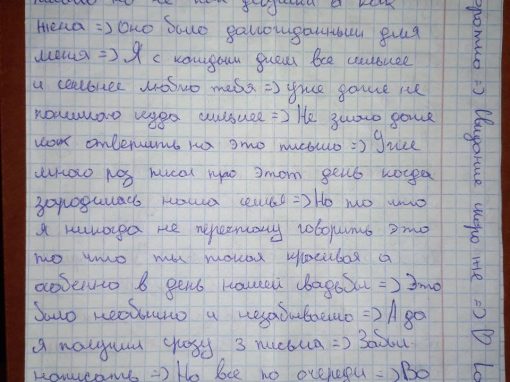 не как девушка а как
жена =) Оно было долгожданным для
меня =) Я с каждым днем все сильнее
и сильнее люблю тебя =) уже даже не
понимаю куда сильнее =) Не знаю даже
как ответить на это письмо =) Уже
много раз писал про этот день когда
зародилась наша семья =) Но то что
я никогда не перестану говорить это
то что ты такая красивая а
особенно в день нашей свадьбы =) Это
было необычно и незабываемо =) А да
я получил сразу 3 письма =) Забыл
написать =) Но все по очереди =) Во
=) Сидение скоро же =)